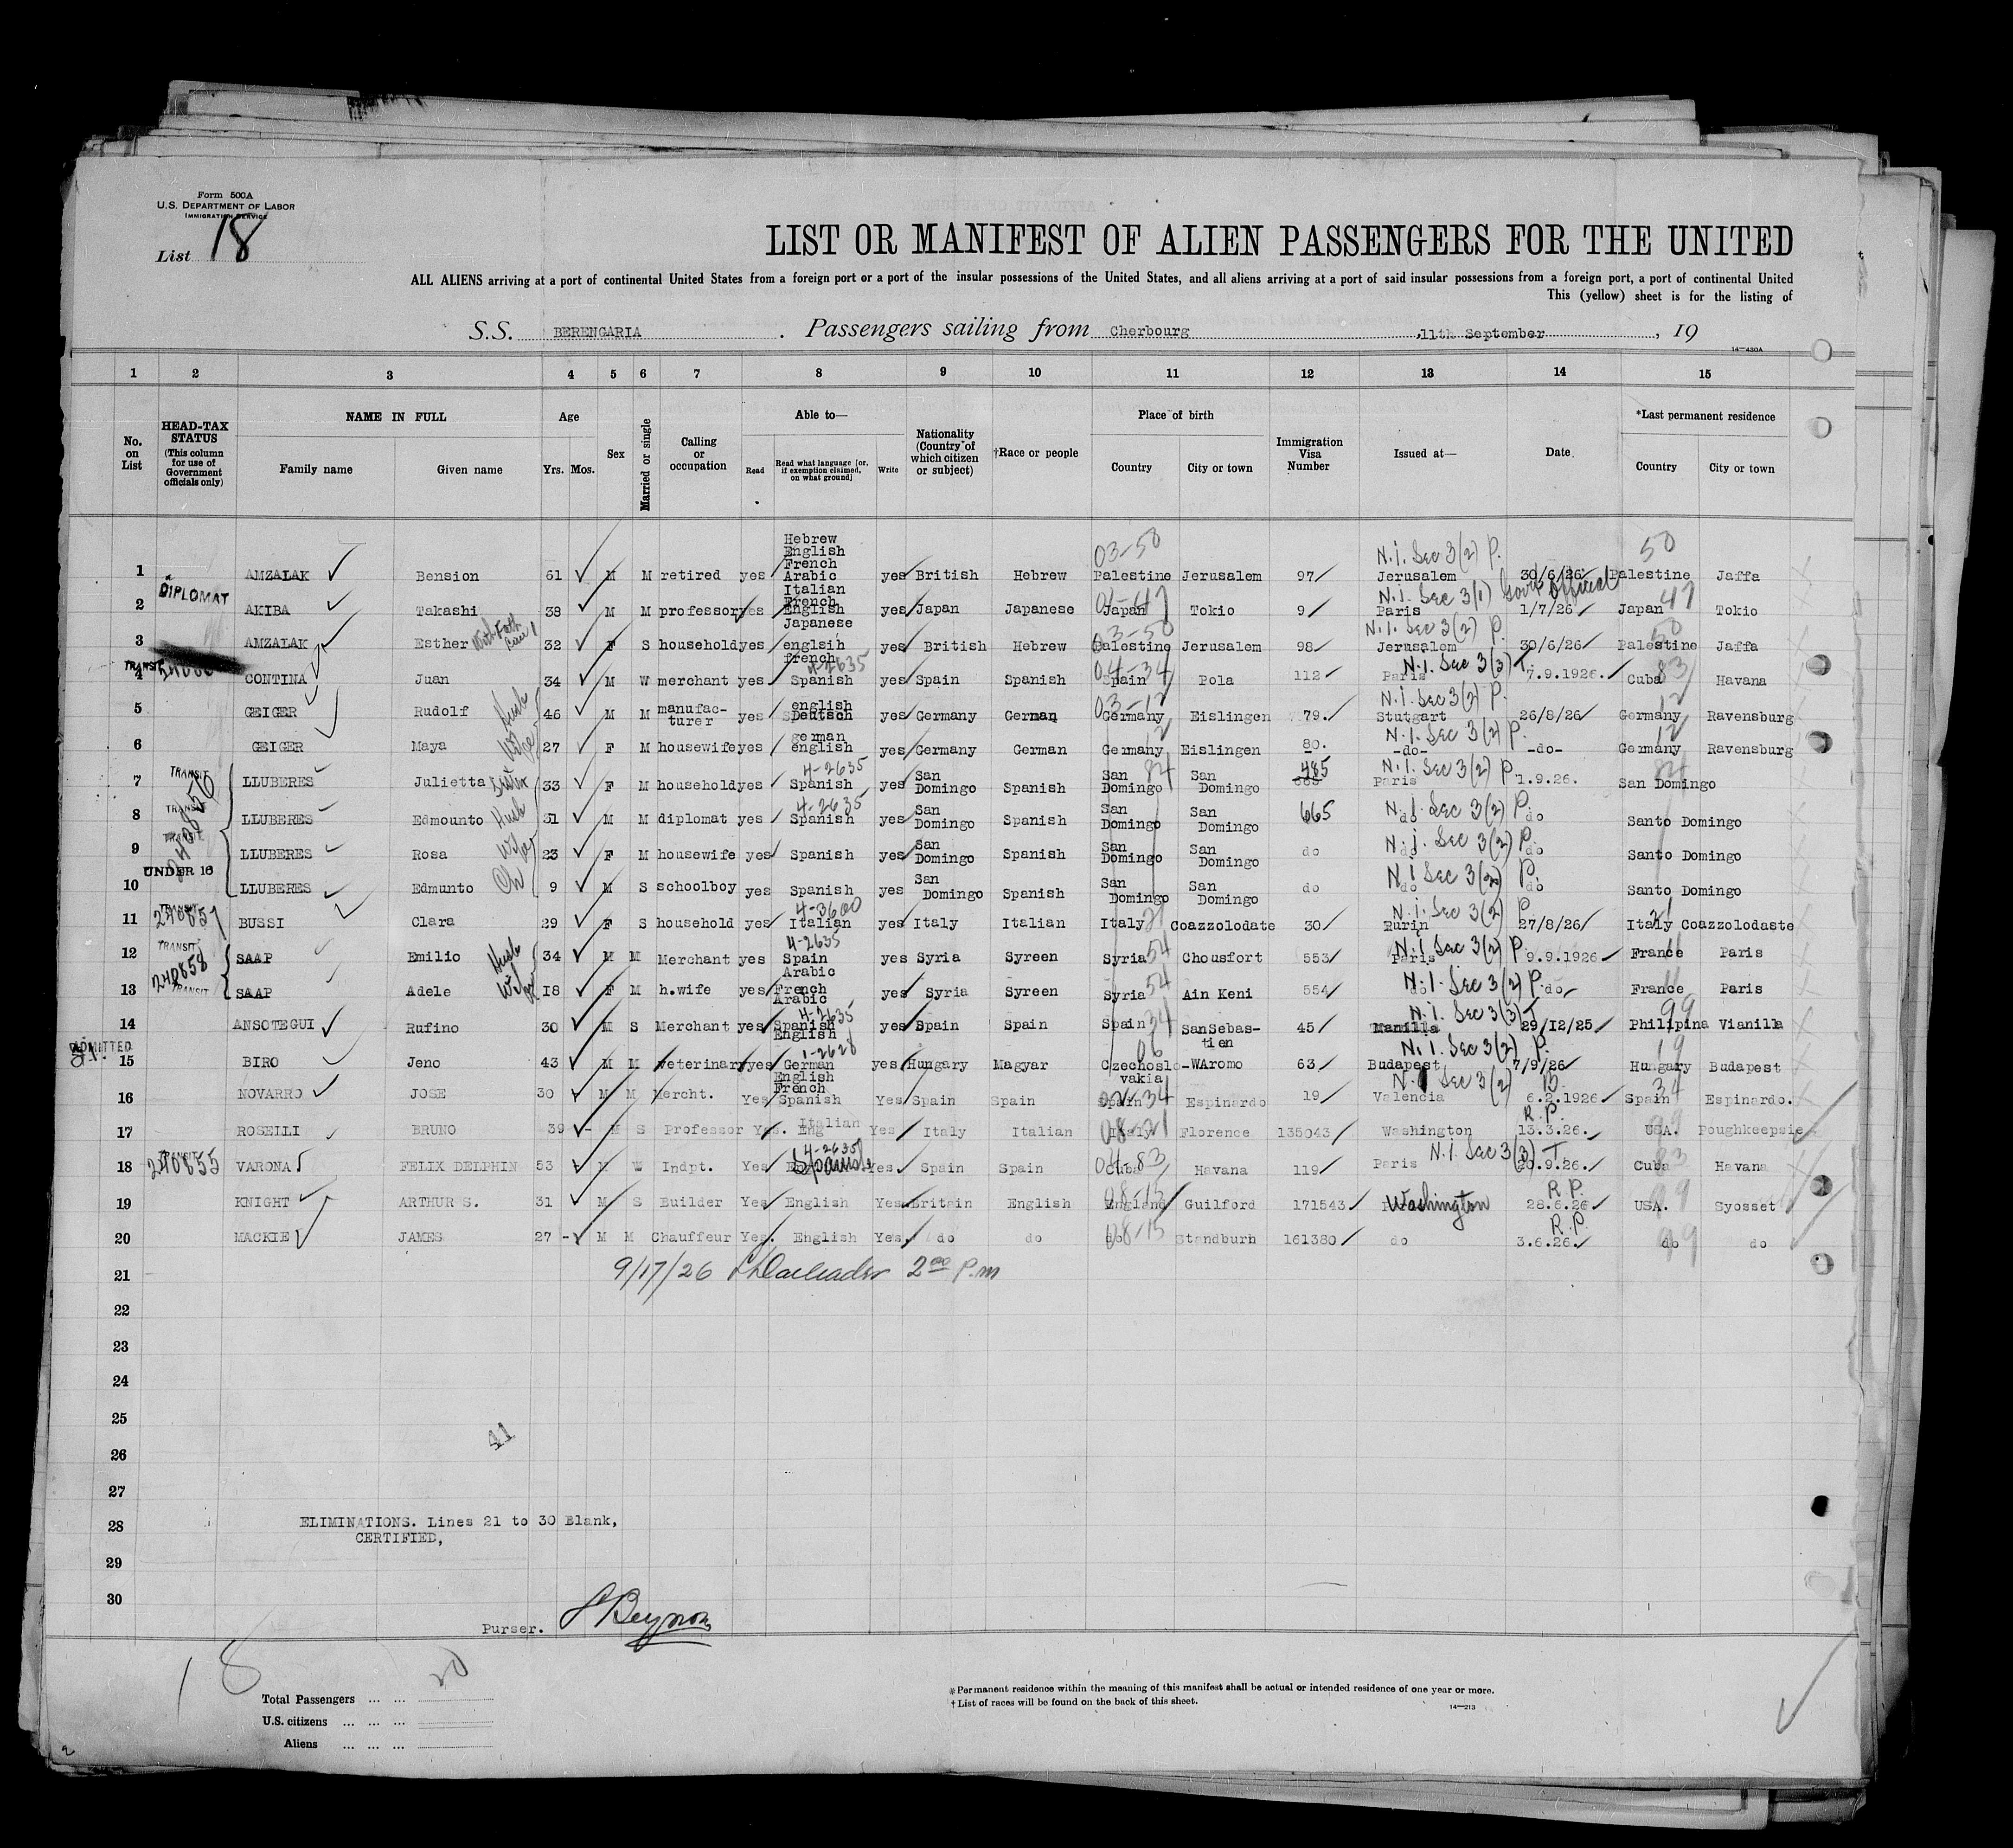 Form 500A
U.S. DEPARTMENT OF LABOR
IMMIGRATION SERVICE
List 18
LIST OR MANIFEST OF ALIEN PASSENGERS FOR THE UNITED
ALL ALIENS arriving at a port of continental United States from a foreign port or a port of the insular possessions of the United States, and all aliens arriving at a port of said insular possessions from a foreign port, a port of continental United
This (yellow) sheet is for the listing of
S.S. BERENGARIA. Passengers sailing from Cherbourg, 11th September, 19
14—430A
1 2 3 4 5 6 7 8 9 10 11 12 13 14 15
No. on List
HEAD-TAX STATUS (This column for use of Government officials only)
NAME IN FULL
Family name Given name
Age
Yrs. Mos.
Sex
Married or single
Calling or occupation
Able to—
Read
Read what language [or, if exemption claimed, on what ground]
Write
Nationality (Country of which citizen or subject)
†Race or people
Place of birth
Country City or town
Immigration Visa Number
Issued at—
Date
*Last permanent residence
Country City or town
1 AMZALAK Bension 61 M M retired yes Hebrew English French Arabic Italian yes British Hebrew 03-50 Palestine Jerusalem 97 N.I. Sec 3(2) P. Jerusalem 30/6/26 50 Palestine Jaffa
2 DIPLOMAT AKIBA Takashi 38 M M professor yes French English Japanese yes Japan Japanese Japan Tokio 9 N.I. Sec 3(1) Govt Official Paris 1/7/26 Japan 47 Tokio
3 AMZALAK Esther 32 F S household yes englsih french yes British Hebrew 03-50 Palestine Jerusalem 98 N.I. Sec 3(2) P. Jerusalem 30/6/26 50 Palestine Jaffa
4 TRANSIT CONTINA Juan 34 M W merchant yes 4-2635 Spanish yes Spain Spanish 04-34 Spain Pola 112 N.I. Sec 3(3) T. Paris 7.9.1926. Cuba 83 Havana
5 GEIGER Rudolf Husb 46 M M manufacturer yes english Deutsch yes Germany German 03-12 Germany Eislingen 79. N.I. Sec 3(2) P. Stutgart 26/8/26 12 Germany Ravensburg
6 GEIGER Maya Wife 27 F M housewife yes german english yes Germany German 12 Germany Eislingen 80. N.I. Sec 3(2) P. -do- -do- 12 Germany Ravensburg
7 TRANSIT LLUBERES Julietta Sister 33 F M household yes 4-2635 Spanish yes San Domingo Spanish San Domingo 84 San Domingo 485 N.I. Sec 3(2) P. Paris 1.9.26. 84 San Domingo
8 TRANSIT LLUBERES Edmounto Husb 31 M M diplomat yes 4-2635 Spanish yes San Domingo Spanish San Domingo San Domingo 665 N.I. Sec 3(2) P. do do Santo Domingo
9 TRANSIT LLUBERES Rosa Wife 23 F M housewife yes Spanish yes San Domingo Spanish San Domingo San Domingo do N.I. Sec 3(2) P. do do Santo Domingo
10 UNDER 16 LLUBERES Edmunto Ch 9 M S schoolboy yes Spanish yes San Domingo Spanish San Domingo San Domingo do N.I. Sec 3(2) P. do do Santo Domingo
11 TRANSIT 240857 BUSSI Clara 29 F S household yes 4-3600 Italian yes Italy Italian Italy 21 Coazzolodate 30 N.I. Sec 3(2) P. Turin 27/8/26 Italy Coazzolodaste
12 TRANSIT SAAP Emilio Husb 34 M M Merchant yes 4-2635 Spain Arabic yes Syria Syreen Syria 54 Chousfort 553 N.I. Sec 3(2) P. Paris 9.9.1926 France Paris
240858
13 TRANSIT SAAP Adele Wife 18 F M h.wife yes French Arabic yes Syria Syreen Syria 54 Ain Keni 554 N.I. Sec 3(2) P. do do France Paris
14 ANSOTEGUI Rufino 30 M S Merchant yes 4-2635 Spanish English yes Spain Spain Spain 34 SanSebastien 45 N.I. Sec 3(3) T Manilla 29/12/25 99 Philipina Vianilla
15 ADMITTED BIRO Jeno 43 M M veterinary yes 1-2628 German English French yes Hungary Magyar 06 Czechoslo-vakia WAromo 63 N.I. Sec 3(2) P. Budapest 7/9/26 19 Hungary Budapest
16 NOVARRO JOSE 30 M M Mercht. Yes Spanish Yes Spain Spain Spain 34 Espinardo 19 N.I. Sec 3(2) B. Valencia 6.2.1926 34 Spain Espinardo.
17 ROSEILI BRUNO 39 M S Professor Yes. Italian Eng Yes Italy Italian 08-21 Italy Florence 135043 Washington R.P. 13.3.26. 99 USA. Poughkeepsie
18 240855 VARONA FELIX DELPHIN 53 M W Indpt. Yes 4-2635 Spanish Yes. Spain Spain 04-83 Cuba Havana 119 N.I. Sec 3(3) T Paris 20.9.26. 83 Cuba Havana
19 KNIGHT ARTHUR S. 31 M S Builder Yes English Yes Britain English 08-15 England Guilford 171543 Washington R.P. 28.6.26 99 USA. Syosset
20 MACKIE JAMES 27 M M Chauffeur Yes. English Yes. do do 08-15 do Standburn 161380 do R.P. 3.6.26. 99 do do
21 9/17/26 2 00 P.m
22
23
24
25
26
27
28 ELIMINATIONS. Lines 21 to 30 Blank,
CERTIFIED,
29
30
Purser. Beynon
18
20
Total Passengers ... ...
U.S. citizens ... ... ...
Aliens ... ... ...
*Permanent residence within the meaning of this manifest shall be actual or intended residence of one year or more.
†List of races will be found on the back of this sheet.
14—213